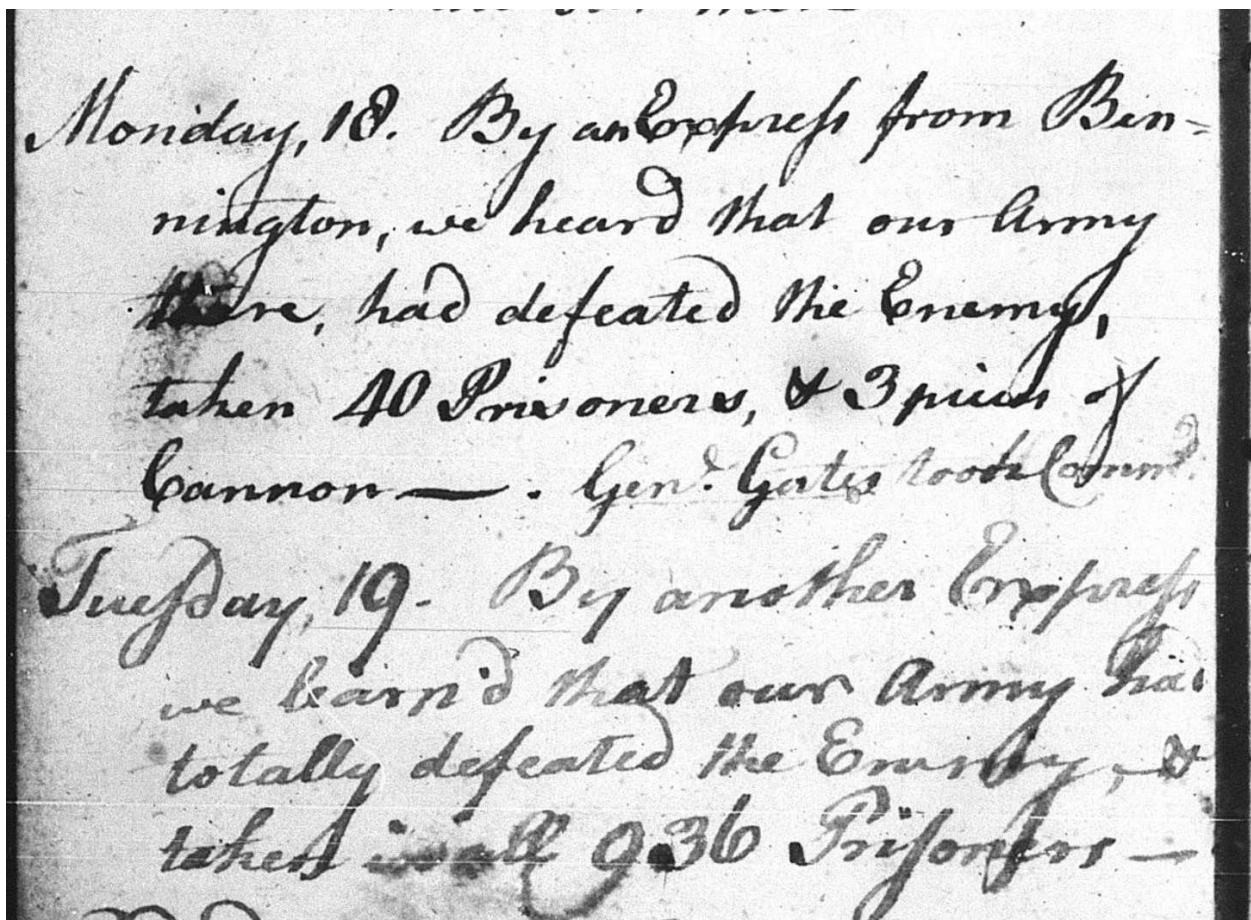 Monday, 18. By an Express from Ben=
nington, we heard that our Army
there, had defeated the Enemy,
taken 40 Prisoners, & 3 pieces of
Cannon —. Genl. Gates took Commd.
Tuesday, 19. By another Express
we learn'd that our Army had
totally defeated the Enemy, &
taken in all 936 Prisoners —